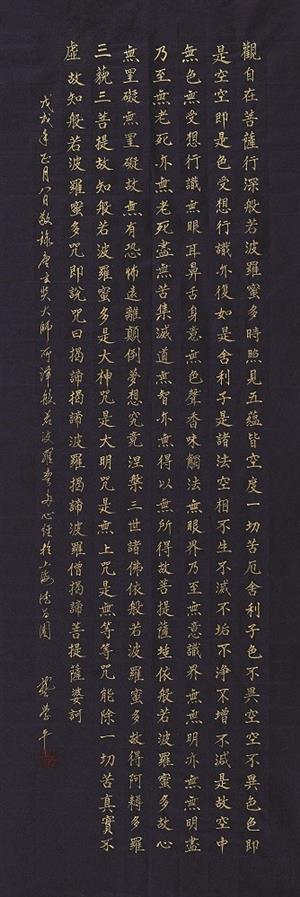 觀自在菩薩行深般若波羅蜜多時照見五蘊皆空度一切苦厄舍利子色不異空空不異色色即
是空空即是色受想行識亦復如是舍利子是諸法空相不生不滅不垢不淨不增不減是故空中
無色無受想行識無眼耳鼻舌身意無色聲香味觸法無眼界乃至無意識界無無明亦無無明盡
乃至無老死亦無老死盡無苦集滅道無智亦無得以無所得故菩提薩埵依般若波羅蜜多故心
無罣礙無罣礙故無有恐怖遠離顛倒夢想究竟涅槃三世諸佛依般若波羅蜜多故得阿耨多羅
三藐三菩提故知般若波羅蜜多是大神咒是大明咒是無上咒是無等等咒能除一切苦真實不
虛故知般若波羅蜜多咒即說咒曰揭諦揭諦波羅揭諦波羅僧揭諦菩提薩婆訶
戊戌年正月八日敬錄唐玄奘大師所譯般若波羅蜜多心經於上海